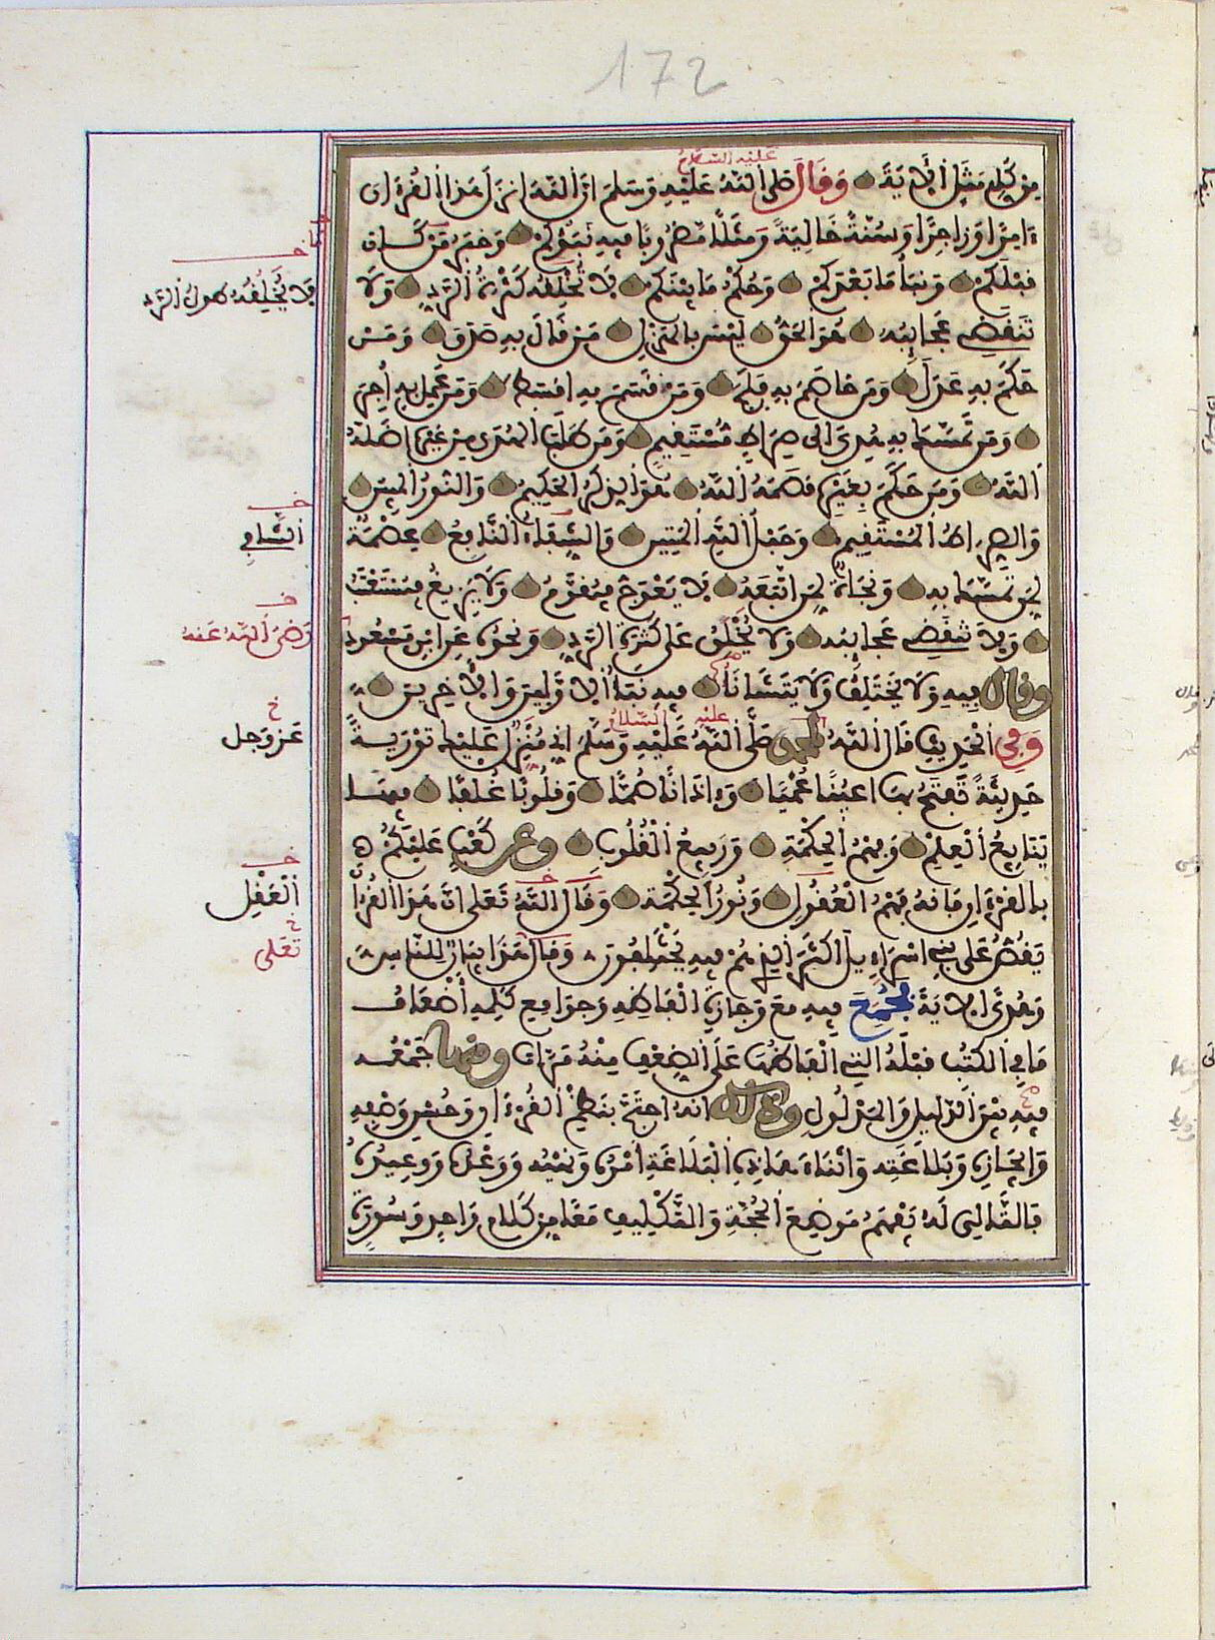 172
مِن كُلِّ مَثَلٍ الْآيَةَ وَقَالَ صَلَّى اللَّهُ عَلَيْهِ وَسَلَّمَ إِنَّ اللَّهَ أَنزَلَ هَذَا الْقُرْءَانَ
عليه السلام
ءَامِرًا وَزَاجِرًا وَسُنَّةً خَالِيَةً وَمَثَلًا مَضْرُوبًا فِيهِ نَبَؤُكُمْ وَخَبَرُ مَن كَانَ
قَبْلَكُمْ وَنَبَأُ مَا بَعْدَكُمْ وَحُكْمُ مَا بَيْنَكُمْ لَا تُخْلِقُهُ كَثْرَةُ الرَّدِّ وَلَا
فلا يُخْلِقُهُ طول الرَّدِّ
تَنقَضِي عَجَائِبُهُ هُوَ الْحَقُّ لَيْسَ بِالْهَزْلِ مَن قَالَ بِهِ صَدَقَ وَمَنْ
حَكَمَ بِهِ عَدَلَ وَمَن خَاصَمَ بِهِ فَلَجَ وَمَن قَسَمَ بِهِ أَقْسَطَ وَمَنْ عَمِلَ بِهِ أُجِرَ
وَمَن تَمَسَّكَ بِهِ هُدِيَ إِلَى صِرَاطٍ مُسْتَقِيمٍ وَمَن طَلَبَ الْهُدَى مِن غَيْرِهِ أَضَلَّهُ
اللَّهُ وَمَن حَكَمَ بِغَيْرِهِ قَصَمَهُ اللَّهُ هُوَ الذِّكْرُ الْحَكِيمُ وَالنُّورُ الْمُبِينُ
وَالصِّرَاطُ الْمُسْتَقِيمُ وَحَبْلُ اللَّهِ الْمَتِينُ وَالشِّفَاءُ النَّافِعُ عِصْمَةٌ
خ الشافي
لِمَن تَمَسَّكَ بِهِ وَنَجَاةٌ لِمَن اتَّبَعَهُ لَا يَعْوَجُّ فَيُقَوَّمُ وَلَا يَزِيغُ فَيُسْتَعْتَبُ
وَلَا تَنقَضِي عَجَائِبُهُ وَلَا يَخْلَقُ عَلَى كَثْرَةِ الرَّدِّ وَنَحْوُهُ عَنِ ابْنِ مَسْعُودٍ
خ رضي الله عنه
وقال فِيهِ وَلَا يَخْتَلِفُ وَلَا يَتَشَانَأُ فِيهِ نَبَأُ الْأَوَّلِينَ وَالْآخِرِينَ
وَفِي الْحَدِيثِ قَالَ اللَّهُ لمحمد صَلَّى اللَّهُ عَلَيْهِ وَسَلَّمَ إِنِّي مُنَزِّلٌ عَلَيْكَ تَوْرَيةً
عليه السلام
خ عز وجل
حَدِيثَةً تَفْتَحُ بِهَا أَعْيُنًا عُمْيًا وَءَاذَانًا صُمًّا وَقُلُوبًا غُلْفًا فِيهَا
يَنَابِيعُ الْعِلْمِ وَفَهْمُ الْحِكْمَةِ وَرَبِيعُ الْقُلُوبِ وعن كَعْبٍ عَلَيْكُمْ
بِالْقُرْءَانِ فَإِنَّهُ فَهْمُ الْعُقُولِ وَنُورُ الْحِكْمَةِ وَقَالَ اللَّهُ تَعَلَى إِنَّ هَذَا الْقُرْءَانَ
خ الْعَقْلِ
خ تَعَلى
يَقُصُّ عَلَى بَنِي إِسْرَاءِيلَ أَكْثَرَ الَّذِي هُمْ فِيهِ يَخْتَلِفُونَ وَقَالَ هَذَا بَيَانٌ لِلنَّاسِ
وَهُدًى الْآيَةَ فَجُمِعَ فِيهِ مَعَ وَجَازَةِ أَلْفَاظِهِ وَجَوَامِعِ كَلِمِهِ أَضْعَافُ
مَا فِي الْكُتُبِ قَبْلَهُ الَّتِي أَلْفَاظُهَا عَلَى الضِّعْفِ مِنْهُ مَرَّاتٍ ومنها جَمْعُهُ
فِيهِ بَيْنَ الدَّلِيلِ وَالْمَدْلُولِ وذلك أَنَّهُ احْتُجَّ بِنَظْمِ الْقُرْءَانِ وَحُسْنِ وَصْفِهِ
وَإِيجَازِهِ وَبَلَاغَتِهِ وَأَثْنَاءَ هَذِهِ الْبَلَاغَةِ أَمْرُهُ وَنَهْيُهُ وَوَعْدُهُ وَوَعِيدُهُ
فَالتَّالِي لَهُ يَفْهَمُ مَوْضِعَ الْحُجَّةِ وَالتَّكْلِيفِ مَعًا مِن كَلَامٍ وَاحِدٍ وَسُورَةٍ